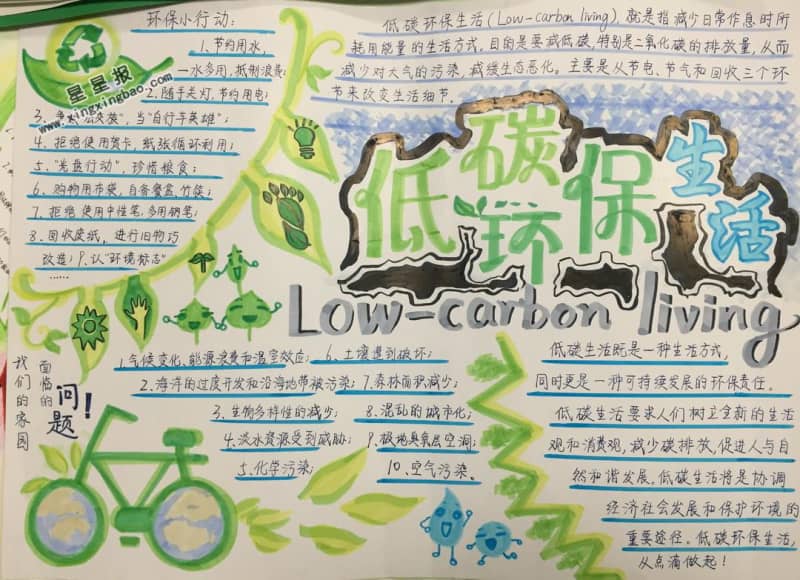 环保小行动:
1.节约用水,
一水多用,抵制浪费;
2.随手关灯,节约用电;
3.争
当"自行车英雄";
4.拒绝使用贺卡,纸张循环利用;
5."光盘行动",珍惜粮食;
6.购物用布袋,自备餐盒,竹筷;
7.拒绝使用中性笔,多用钢笔;
8.回收废纸,进行旧物巧
改造;9.认"环境标志"
……
星星报
www.xingxingbao.com
低碳环保生活(Low-carbon living),就是指减少日常作息时所
耗用能量的生活方式,目的是要减低碳,特别是二氧化碳的排放量,从而
减少对大气的污染,减缓生态恶化。主要是从节电、节气和回收三个环
节来改变生活细节.
低碳环保生活
Low-carbon living
我们的家园
面临的
问题!
1.气候变化、能源浪费和温室效应;
2.海洋的过度开发和沿海地带被污染;
3.生物多样性的减少;
4.淡水资源受到威胁;
5.化学污染;
6.土壤遭到破坏;
7.森林面积减少;
8.混乱的城市化;
9.极地臭氧层空洞;
10.空气污染。
低碳生活既是一种生活方式,
同时更是一种可持续发展的环保责任。
低碳生活要求人们树立全新的生活
观和消费观,减少碳排放,促进人与自
然和谐发展。低碳生活将是协调
经济社会发展和保护环境的
重要途径。低碳环保生活,
从点滴做起!